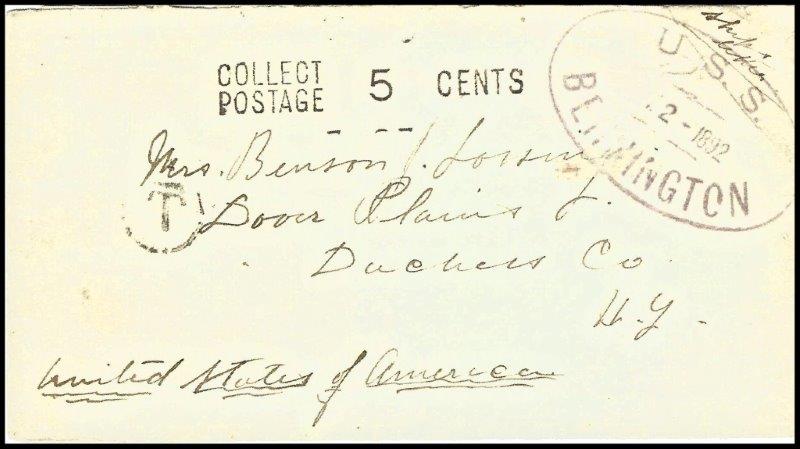 U. S. S.
2 - 1892
BENNINGTON
COLLECT
POSTAGE 5 CENTS
Mrs. Benson J. Lossing
T
Dover Plains
Duchess Co
N.Y.
United States of America